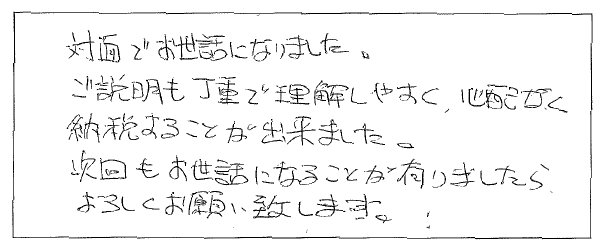 対面でお世話になりました。
ご説明も丁重で理解しやすく、心配なく
納税することが出来ました。
次回もお世話になることが有りましたら
よろしくお願い致します。